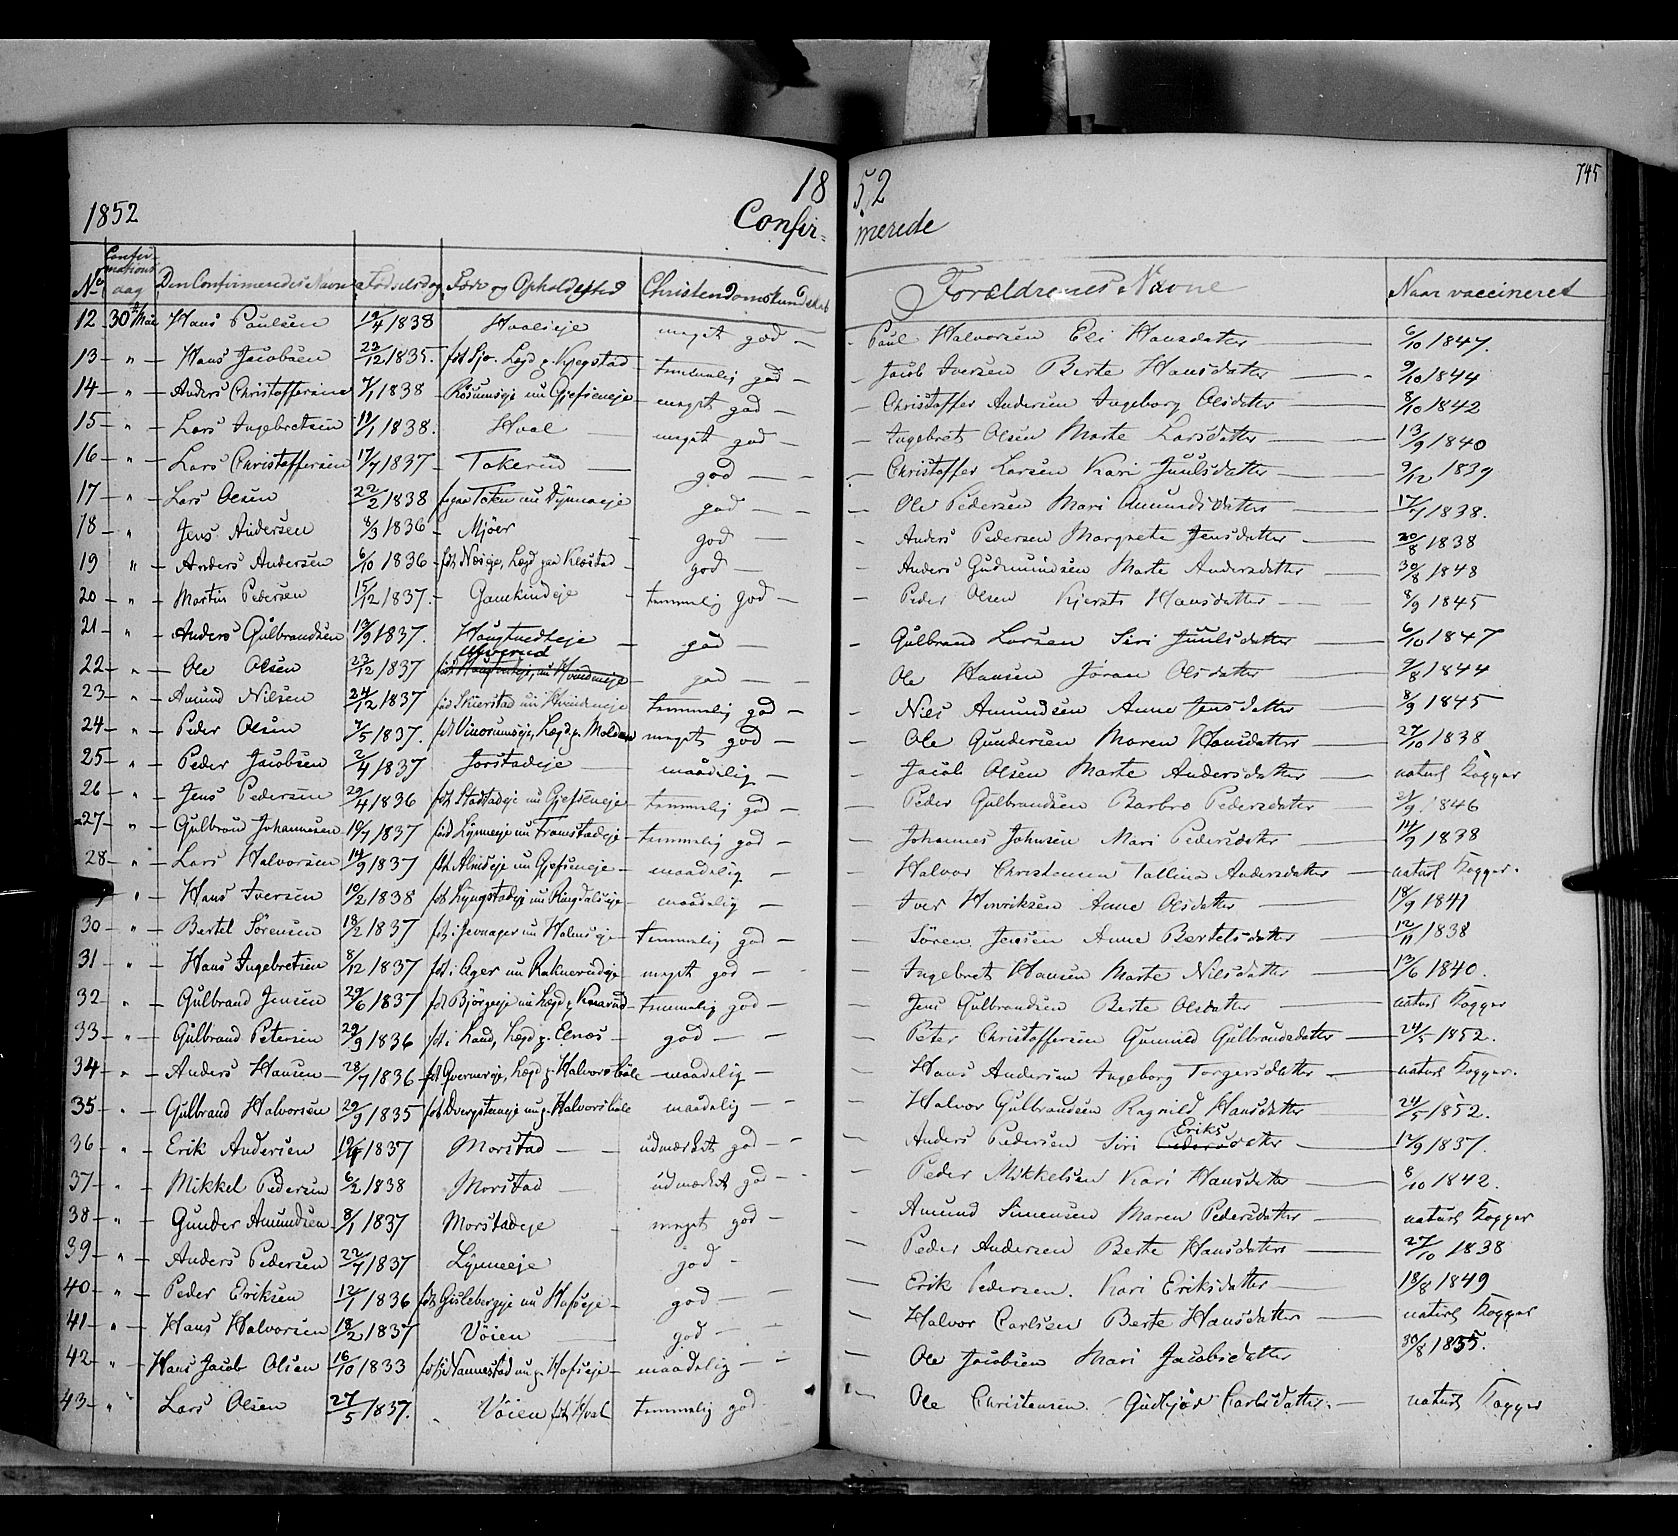 745
18 52
1852 Confir- merede
No Confirmations dag Den Confirmeredes Navn Fødselsdag Føde og Opholdssted Christendomskundskab Forældrenes Navne Naar vaccineret
12 30te Mai Hans Paulsen 19/4 1838 Hvalseje meget god Paul Halvorsen Eli Hansdatter 6/10 1847.
13 " Hans Jacobsen 22/12 1835. temmelig god Jacob Iversen Berte Hansdatter 9/10 1844
14 " Anders Christoffersen 7/1 1838 nu Gjefseneje meget god Christoffer Andersen Ingeborg Olsdatter 8/10 1842
15 " Lars Ingebretsen 11/1 1838. Hval meget god Ingebret Olsen Marte Larsdatter 13/9 1840
16 " Lars Christoffersen 17/7 1837 Tokerud god Christoffer Larsen Kari Juulsdatter 9/12 1839
17 " Lars Olsen 22/2 1838 nu Dynnaeje god Ole Pedersen Mari Amundsdatter 17/7 1838.
18 " Jens Andersen 8/3 1836 Mjøer god Anders Pedersen Margrete Jensdatter 20/8 1838
19 " Anders Andersen 6/10 1836 født Næseje, Lægd paa Klæstad god Anders Gudmundsen Marte Andersdatter 30/8 1848
20 " Martin Pedersen 15/12 1837. Gamkindeje temmelig god Peder Olsen Kjersti Hansdatter 8/9 1845
21 " Anders Gulbrandsen 19/9 1837. Haugtvedteje god Gulbrand Larsen Siri Juulsdatter 6/10 1847
22 " Ole Olsen 23/12 1837 god Ole Hansen Jøran Olsdatter 2/8 1844
23 " Amund Nilsen 24/12 1837 temmelig god Niels Amundsen Anne Jensdatter 8/9 1845
24 " Peder Olsen 7/5 1837. meget god Ole Gundersen Maren Hansdatter 27/10 1838
25 " Peder Jacobsen 2/4 1837 Jorstadeje maadelig Jacob Olsen Marte Andersdatter naturl Kopper
26 " Jens Pedersen 29/4 1836 nu Gjefseneje temmelig god Peder Gulbrandsen Barbro Pedersdatter 21/9 1846
27 " Gulbrand Johannesen 10/7 1837 født Lynneeje nu Transtadeje temmelig god Johannes Johnsen Mari Pedersdatter 14/9 1838
28 " Lars Halvorsen 14/9 1837 født Almseje nu Gjefseneje maadelig Halvor Christensen Tallina Andersdatter naturl Kopper.
" Hans Iversen 10/2 1838 født Lyngstadeje nu Ringdalseje maadelig Iver Henriksen Anne Olsdatter 18/9 1841
30 " Bertel Sörensen 18/2 1837 født i Jevnager nu Holmseje temmelig god Sören Jensen Anne Bertelsdatter 12/11 1838
31 " Hans Ingebretsen 8/12 1837 født i Ager nu meget god Ingebret Hansen Marte Nilsdatter 13/6 1840.
32 " Gulbrand Jensen 29/6 1837 født Bjørgeeje nu Lægd p. Knarud temmelig god Jens Gulbrandsen Berte Olsdatter naturl Kopper
33 " Gulbrand Petersen 29/9 1836 født i Land, Lægd p. Elnæs god Peter Christoffersen Gunnild Gulbrandsdatter 24/5 1852.
34 " Anders Hansen 28/7 1836 Lægd p. Halvorsböle maadelig Hans Andersen Ingeborg Torgersdatter naturl Kopper.
35 " Gulbrand Halvorsen 29/9 1835 nu p. Halvorsböle maadelig Halvor Gulbrandsen Ragnild Hansdatter 24/5 1852.
36 " Erik Andersen 1837 Morstad udmærket god Anders Pedersen Siri Eriksdatter 12/9 1837.
37 " Mikkel Pedersen 6/2 1838 Morstad udmærket god Peder Mikkelsen Kari Hansdatter 8/10 1842.
38 " Gunder Amundsen 8/1 1837 Morstadeje meget god Amund Simensen Maren Pedersdatter naturl Kopper
39 " Anders Pedersen 22/7 1837 Lynneeje god Peder Andersen Berte Hansdatter 27/10 1838
40 " Peder Eriksen 12/1 1836 født Gislebergeje nu Hofseje god Erik Pedersen. Kari Eriksdatter 18/8 1849
41 " Hans Halvorsen 18/2 1837 Vöien god Halvor Carlsen Berte Hansdatter naturl Kopper
42 " Hans Jacob Olsen 16/10 1833 nu p. Hofseje maadelig Ole Jacobsen Mari Jacobsdatter 30/8 1835.
43 " Lars Olsen 27/5 1837. Vöien født Hval temmelig god Ole Christensen. Gudbjør Carlsdatter. naturl Kopper